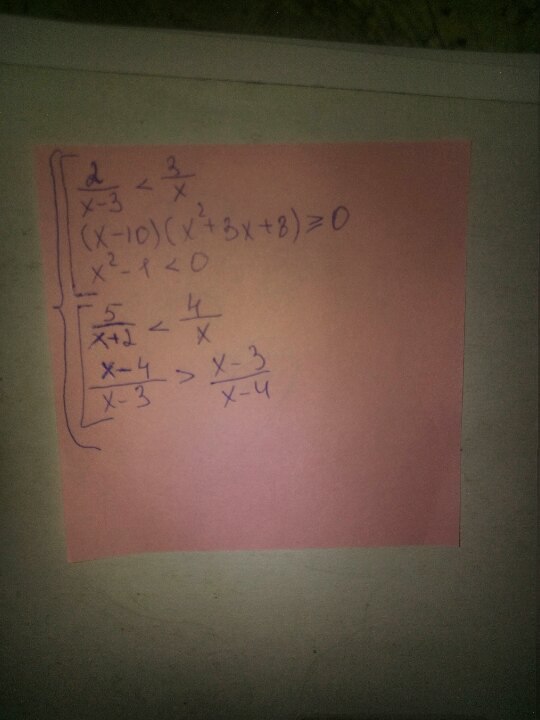 2/(x-3) < 3/x
(x-10)(x²+3x+8) ≥ 0
x²-1 < 0
5/(x+2) < 4/x
(x-4)/(x-3) > (x-3)/(x-4)